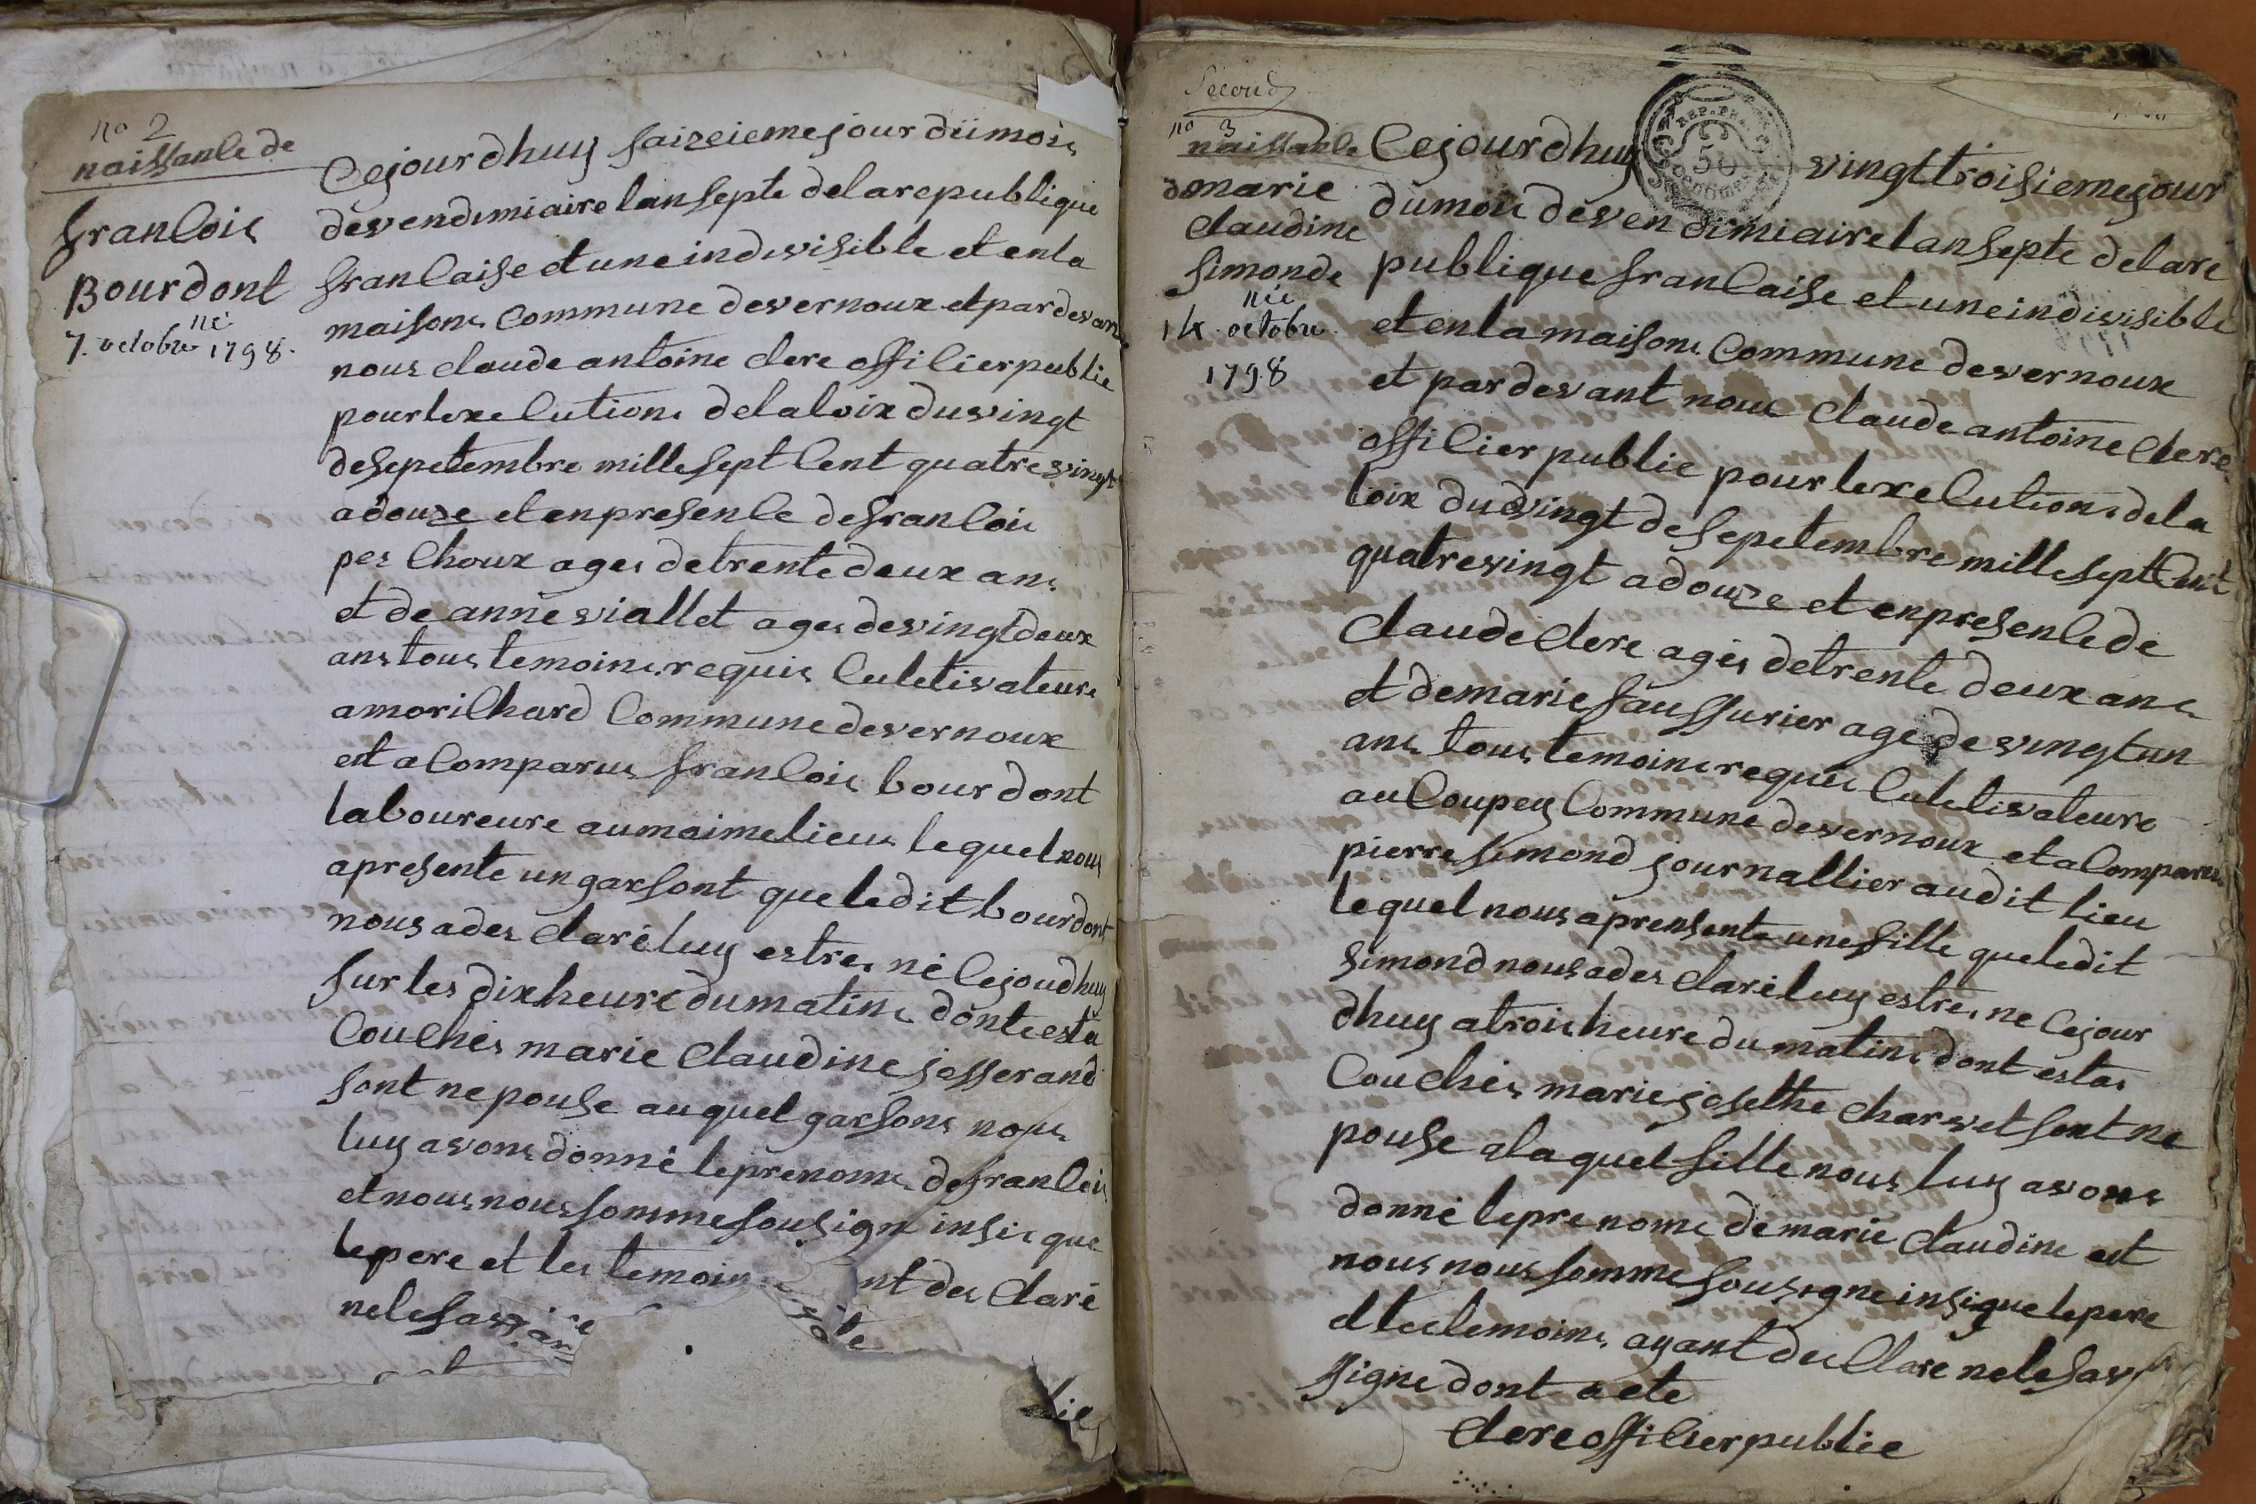 no 2
naissance de
francois
Bourdont
né
7. octobre 1798.
Cejourdhuy saizeieme jour dumois
devendemiaire lan septe delarepublique
francaise et une indivisible et enla
maisons commune devernoux et pardevant
nous claude antoine clerc officier public
pour lexecutions delaloix duvingt
desepetembre mille sept cent quatre vingt
adouze et enpresence defrancois
per choux ages detrente deux ans
et de anne viallet ages devingtdeux
ans tous temoins requis culetivateure
amorilhard commune devernoux
est a comparus francois bourdont
laboureure aumaime lieus lequel nous
apresente ungarsont que ledit bourdont
nous ades claré luy estres né cejoudhuy
sur les dix heure dumatins dont esta
couchés marie claudine josserand
sont nepouse auquel garsons nous
luy avons donné leprenoms defrancois
et nous nous somme sousigne insis que
lepere et les temoins nt des claré
nele sav
lic
Second
no 3
naissance
de marie
claudine
simonde
née
14. octobre
1798
REP. FRA.
50
centimes
Cejourdhuy vingt troisieme jour
dumois deven dimiaire lan septe delaré
publique francaise et une indivisible
et enla maisons commune devernoux
et pardevant nous claude antoine clerc
officier public pour lexecutions dela
loix du vingt desepetembre mille sept cent
quatrevingt adouze et enpresence de
claude clerc agés detrente deux ans
et demarie saussurier age de vingt un
ans tous temoins requis culetivateure
aucoupey commune devernoux et a comparus
pierre simond journallier audit lieu
lequel nous aprensente une fille queledit
simond nous ades claré luy estres ne cejour
dhuy atrois heure du matins dont estas
couchés marie josethe charvet sont ne
pouse alaquel fille nous luy avons
donné lepre noms de marie claudine est
nous nous somme sousigne insi que lepere
et les temoins ayant des clare nele sav
signe dont acte
clerc officier public